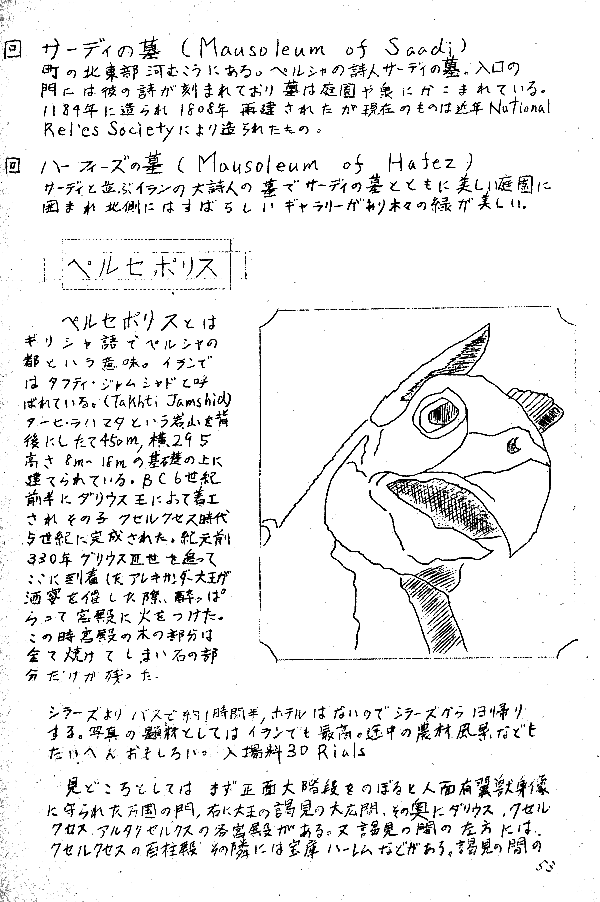 回 サーディの墓 (Mausoleum of Saadi)
町の北東部河むこうにある。ペルシャの詩人サーディの墓。入口の
門には彼の詩が刻まれており墓は庭園や泉にかこまれている。
1184年に造られ 1808年 再建されたが現在のものは近年 National
Relics Society により造られたもの。
回 ハーフィーズの墓 (Mausoleum of Hafez)
サーディと並ぶイランの大詩人の墓でサーディの墓とともに美しい庭園に
囲まれ 北側にはすばらしい ギャラリーがあり木々の緑が美しい。
ペルセポリス
ペルセポリスとは
ギリシャ語でペルシャの
都という意味。イランで
はタフティ・ジャムシャドと呼
ばれている。(Takhti Jamshid)
クーヒ・ラハマタという岩山を背
後にしたて450m,横295
高さ8m〜18mの基礎の上に
建てられている。BC6世紀
前半にダリウス王によって着工
されその子 クセルクセス時代
5世紀に完成された。紀元前
330年ダリウスⅢ世を追って
ここに到着したアレキサンダー大王が
酒宴を催した際、酔っぱ
らって宮殿に火をつけた。
この時宮殿の木の部分は
全て焼けてしまい石の部
分だけが残った。
シラーズよりバスで約1時間半,ホテルはないのでシラーズから日帰り
する。写真の題材としてはイランでも最高。途中の農村風景なども
たいへんおもしろい。入場料30 Rials
見どころとしてはまず正面大階段をのぼると人面有翼獣身像
に守られた万国の門,右に大王の謁見の大広間,その奥にダリウス,クセル
クセス,アルタクセルクスの各宮殿がある。又謁見の間の左方には,
クセルクセスの百柱殿 その隣には宝庫 ハーレムなどがある。謁見の間の
53